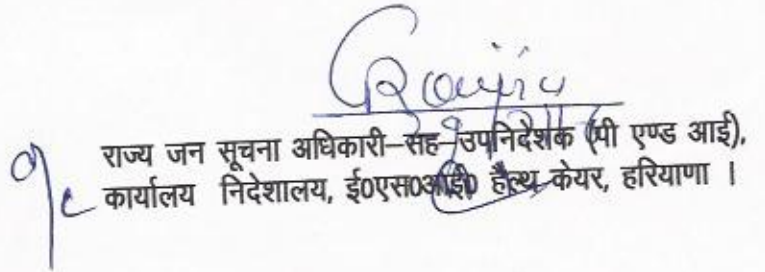 राज्य जन सूचना अधिकारी–सह–उपनिदेशक (पी एण्ड आई),
कार्यालय निदेशालय, ई0एस0आई0 हैल्थ केयर, हरियाणा ।